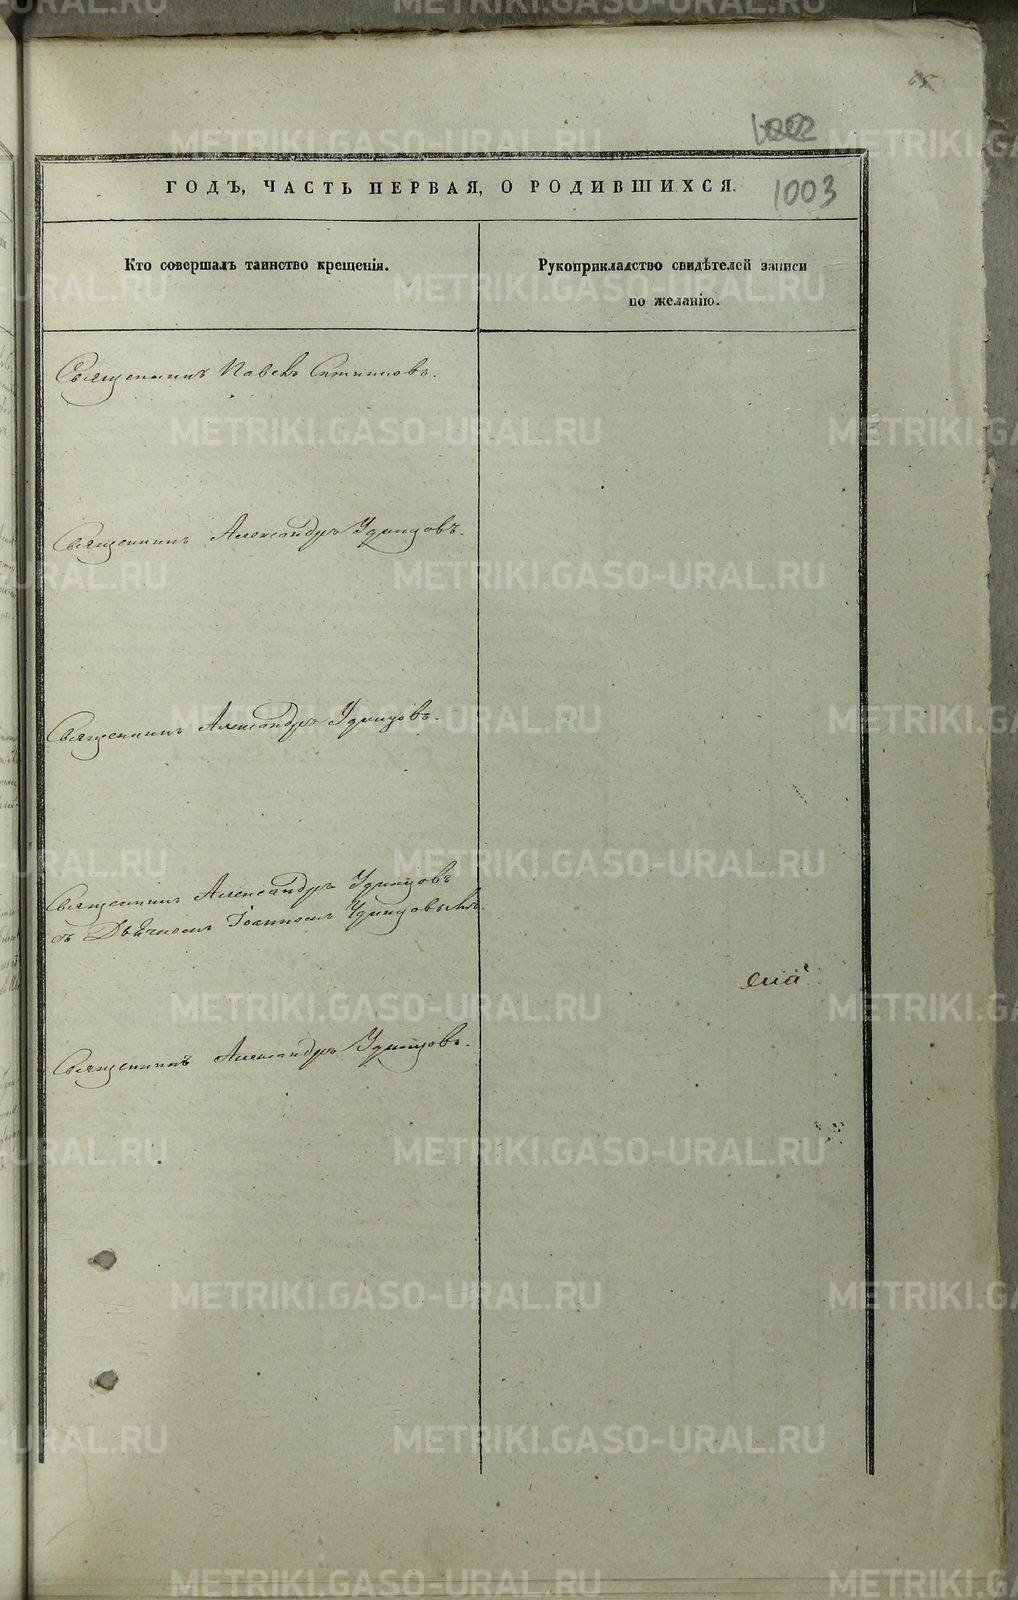 1002
ГОДЪ, ЧАСТЬ ПЕРВАЯ, О РОДИВШИХСЯ.
1003
Кто совершалъ таинство крещенія.
Рукоприкладство свидѣтелей записи
по желанію.
Священникъ Павелъ
Священникъ Александръ Удинцовъ.
Священникъ Александръ Удинцовъ.
Священникъ Александръ Удинцовъ
съ Дьячкомъ Іоанномъ Удинцовымъ.
Священникъ Александръ Удинцовъ.
METRIKI.GASO-URAL.RU